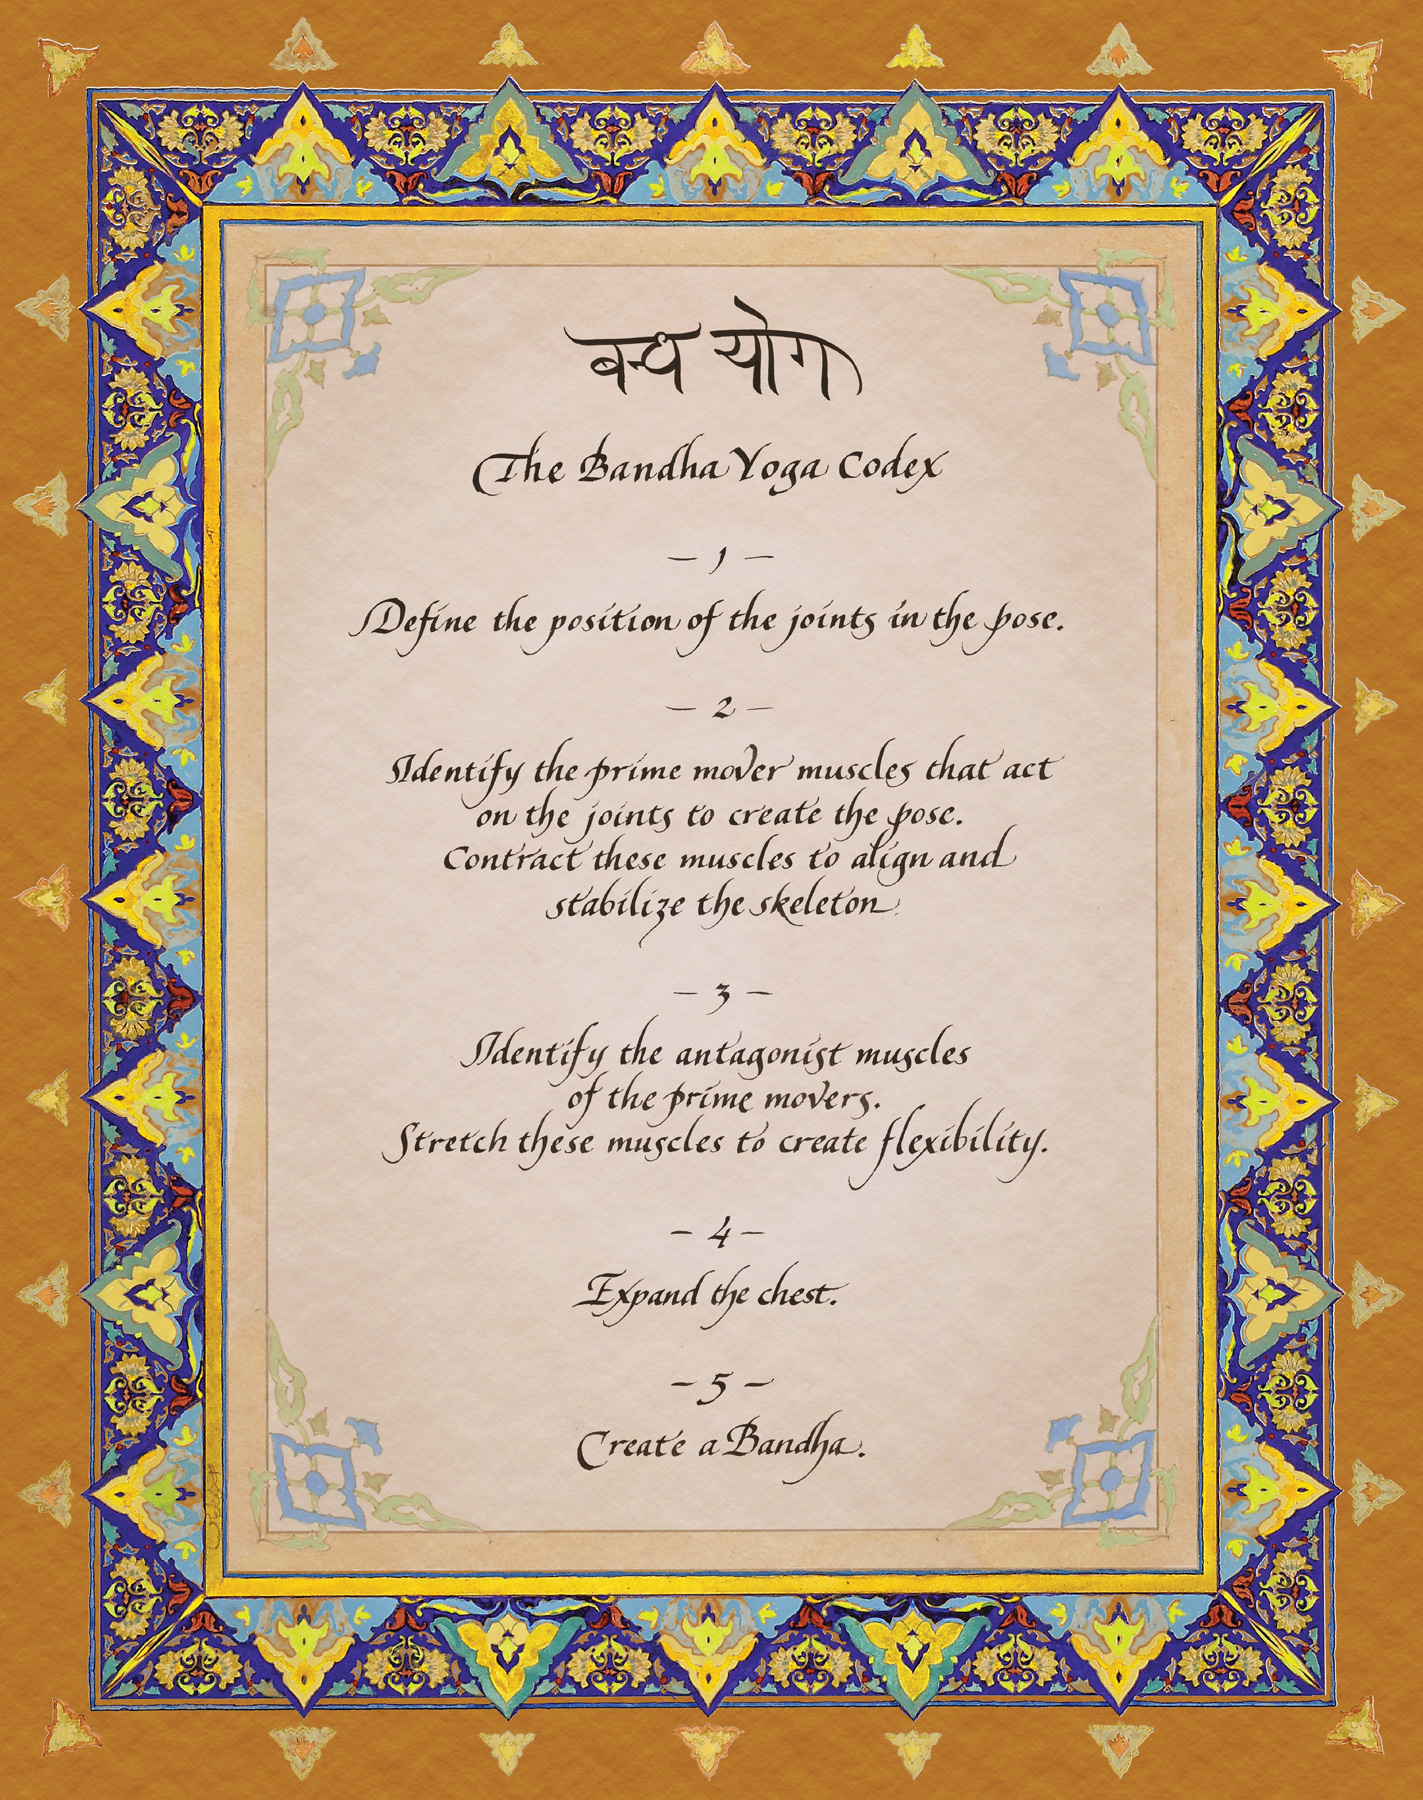 बन्ध योग
The Bandha Yoga Codex
– 1 –
Define the position of the joints in the pose.
– 2 –
Identify the prime mover muscles that act
on the joints to create the pose.
Contract these muscles to align and
stabilize the skeleton.
– 3 –
Identify the antagonist muscles
of the prime movers.
Stretch these muscles to create flexibility.
– 4 –
Expand the chest.
– 5 –
Create a Bandha.